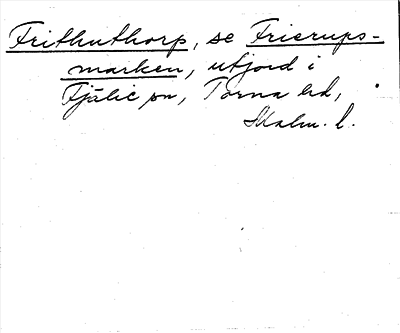 Frithuthorp, se Frierups-
marken, utjord i
Fjälie sn, Torna hd,
Malm. l.